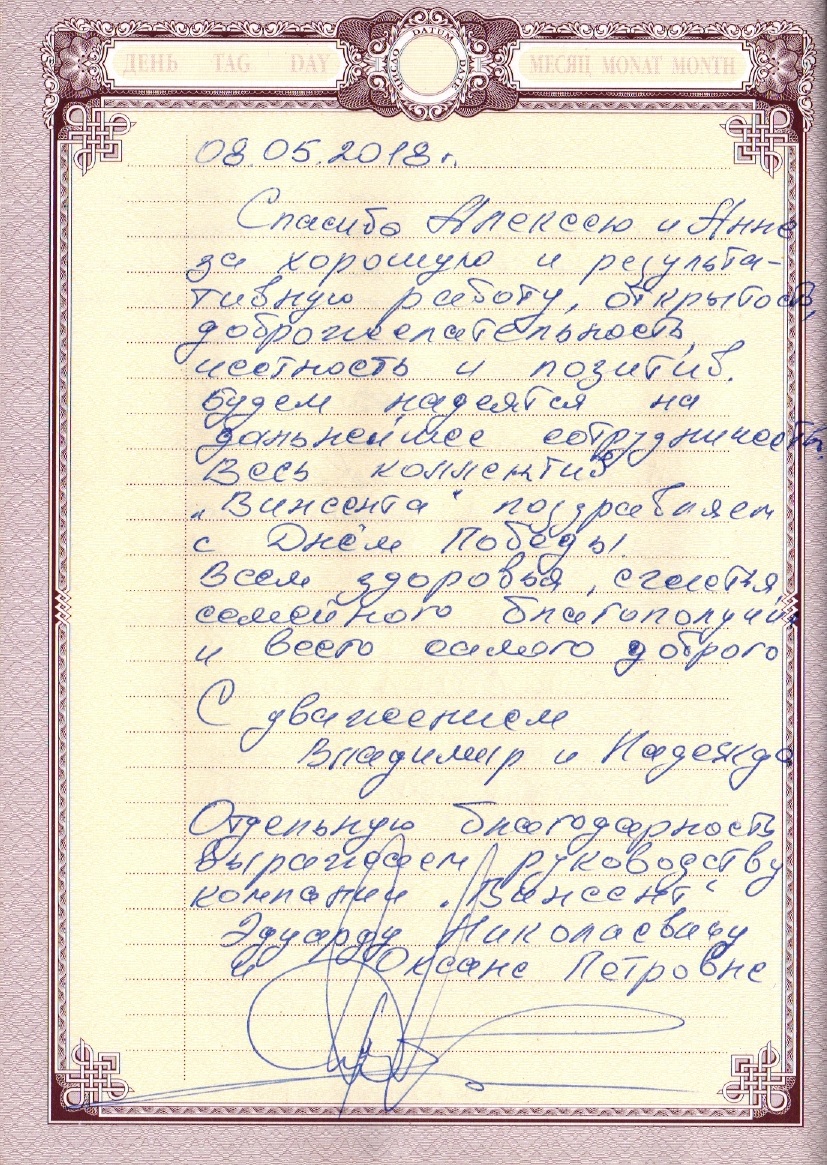 ДЕНЬ TAG DAY
DATUM DATE
МЕСЯЦ MONAT MONTH
08.05.2018 г.
Спасибо Алексею и Анне
за хорошую и результа-
тивную работу, открытость,
доброжелательность,
честность и позитив.
Будем надеятся на
дальнейшее сотрудничество.
Весь коллектив
„Винсента“ поздравляем
с Днём Победы!
Всем здоровья, счастья,
семейного благополучия
и всего самого доброго
С уважением
Владимир и Надежда
Отдельную благодарность
выражаем руководству
компании „Винсент“
Эдуарду Николаевичу
и Оксане Петровне